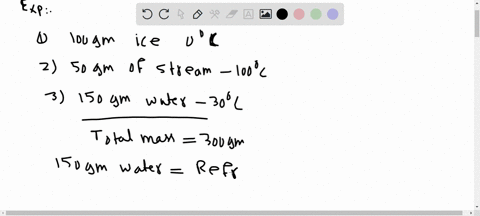 Exp:-
1) 100gm ice 0°C
2) 50 gm of stream - 100°C
3) 150 gm water - 30°C
Total mass = 300gm
150 gm water = Refr